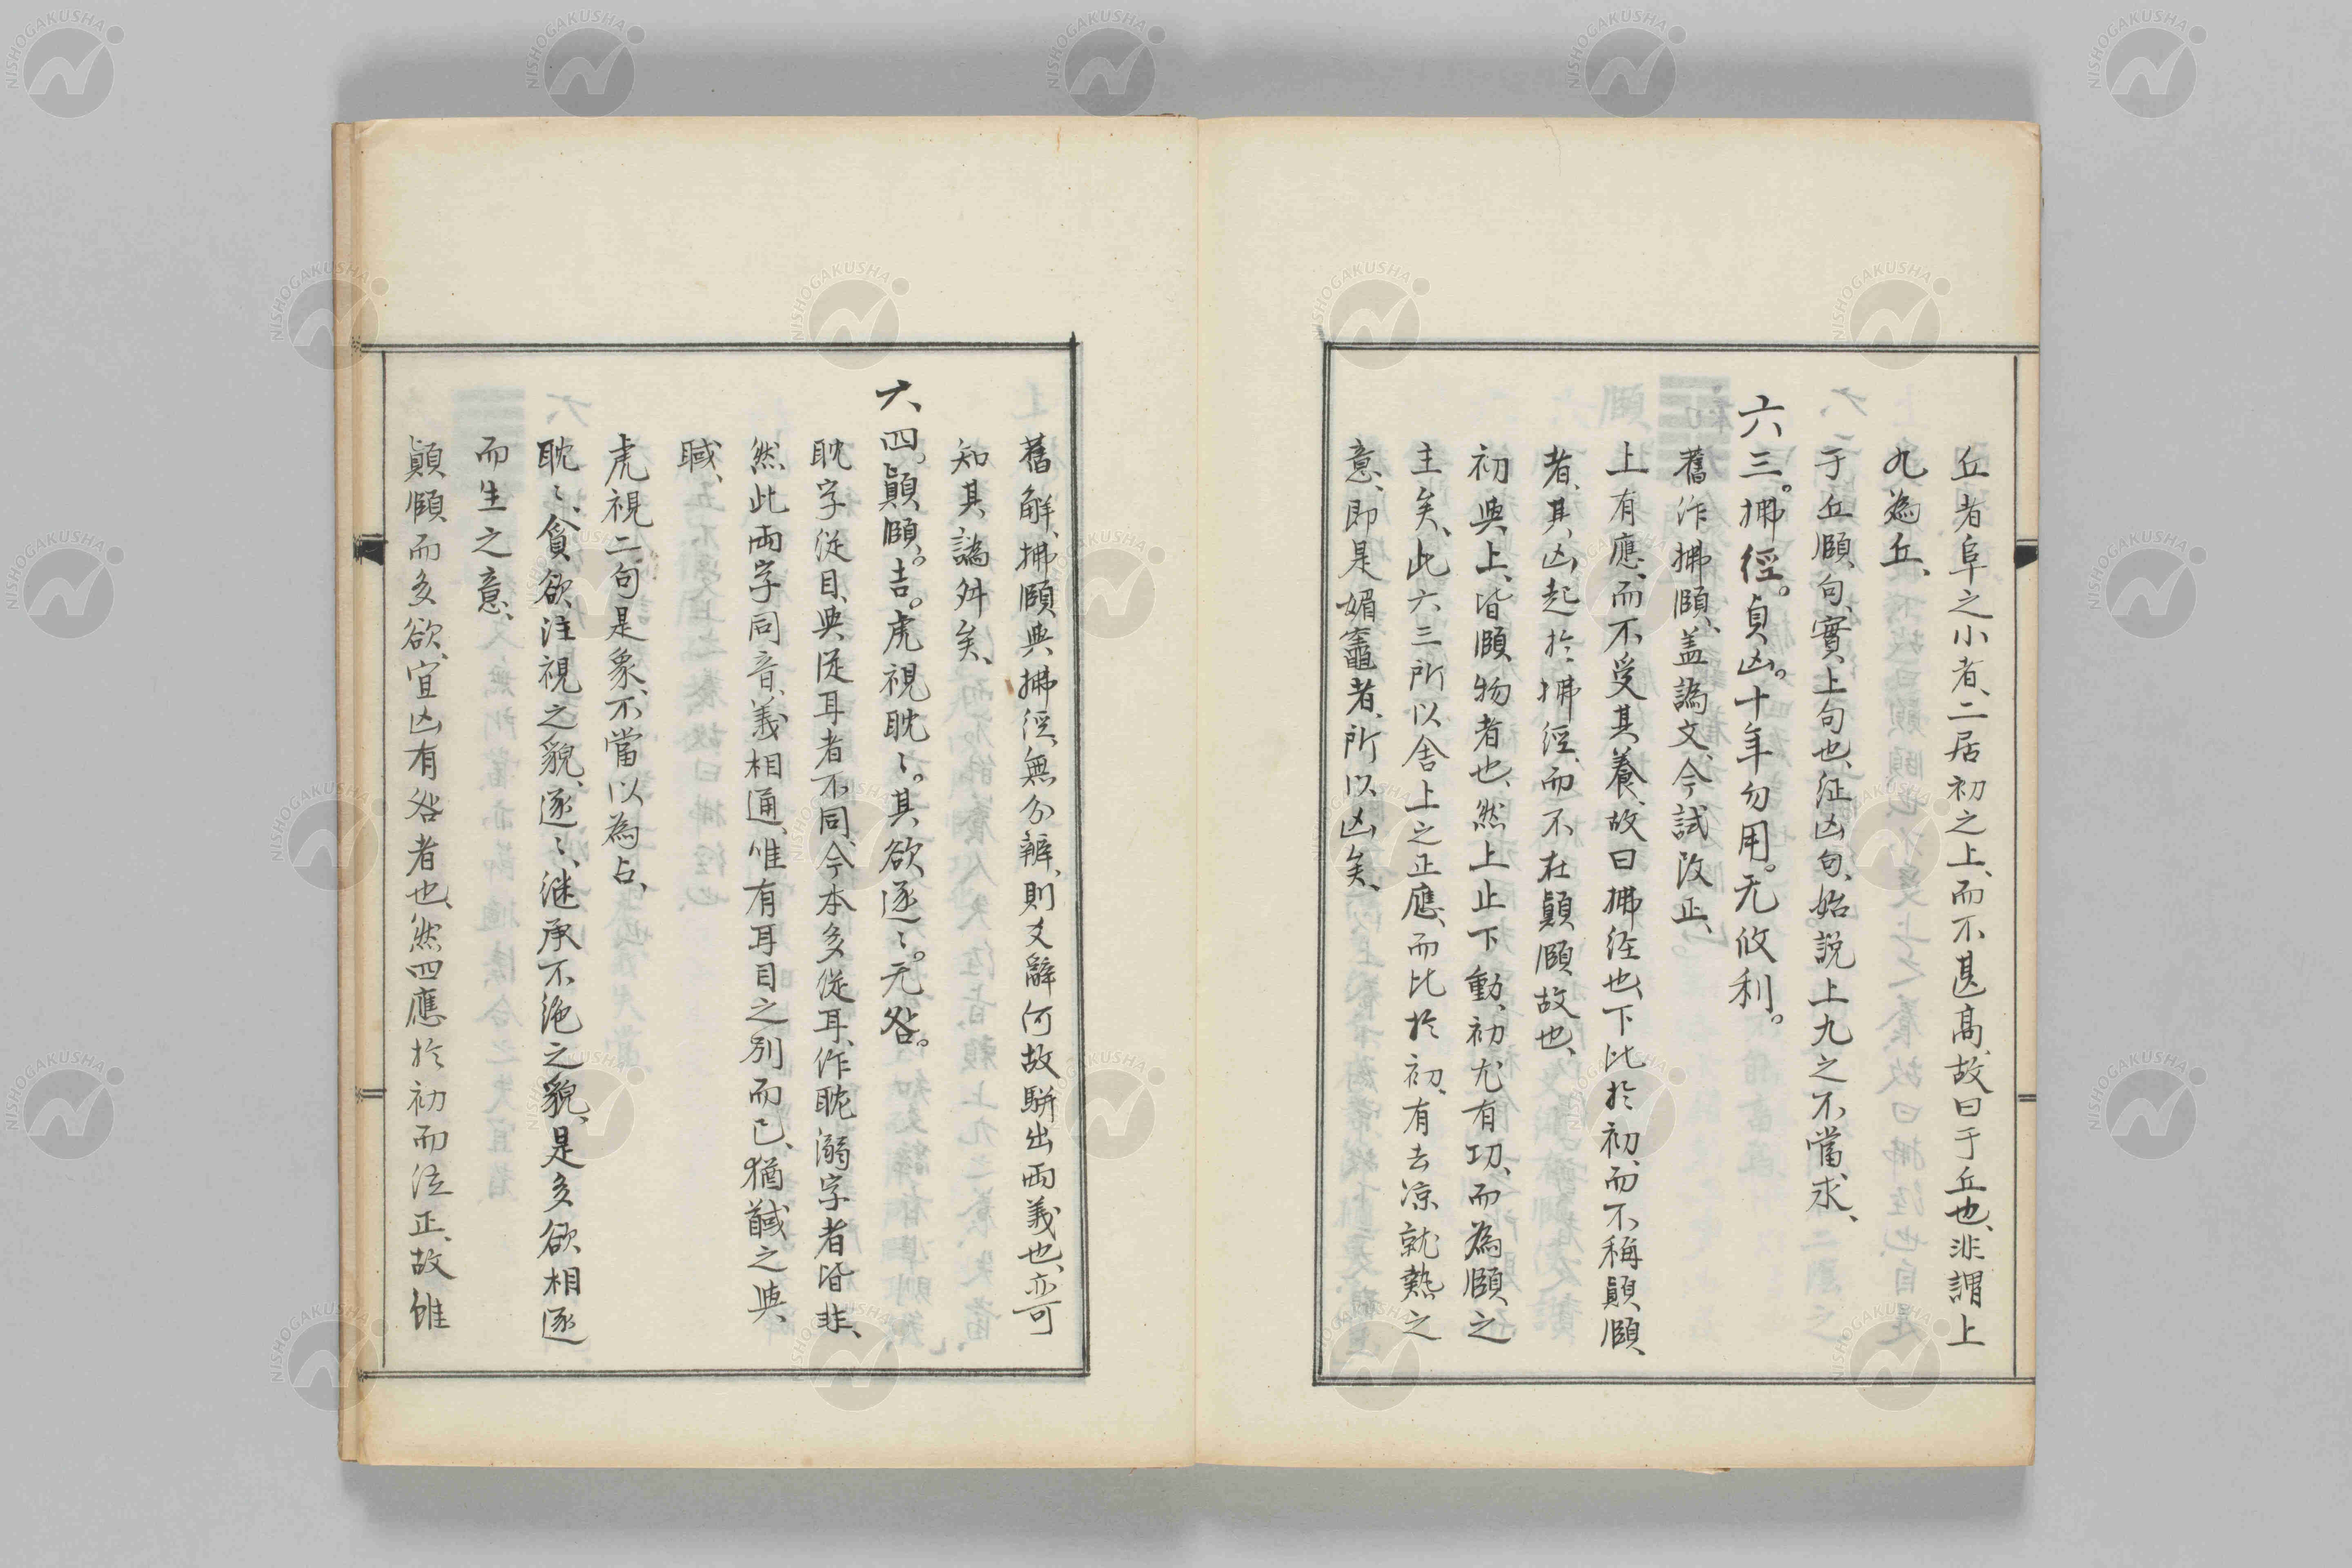 丘者阜之小者、二居初之上、而不甚高、故曰于丘也、非謂上
九為丘、
于丘頤句、實上句也、征凶句、始説上九之不當求、
六三。拂經。貞凶。十年勿用。无攸利。
舊作拂頤、盖譌文、今試改正、
上有應、而不受其養、故曰拂經也、下比於初、而不稱顛頤、
者、其凶起於拂經、而不在顛頤故也、
初與上、皆頤物者也、然上止下動、初尤有功、而為頤之
主矣、此六三所以舎上之正應、而比於初、有去凉就熱之
意、即是媚竈者、所以凶矣、
舊解、拂頤與拂經、無分辨、則爻辭何故駢出両義也、亦可
知其譌舛矣、
六四。顛頤。吉。虎視眈〻。其欲逐〻。无咎。
眈字従目、與従耳者不同、今本多従耳、作耽溺字者皆非、
然此両字同音、義相通、唯有耳目之別而已、猶馘之與
聝、
虎視二句是象、不當以為占、
眈〻、貪欲注視之貌、逐〻、継承不絶之貌、是多欲相逐
而生之意、
顛頤而多欲、宜凶有咎者也、然四應於初而位正、故雖
NISHOGAKUSHA